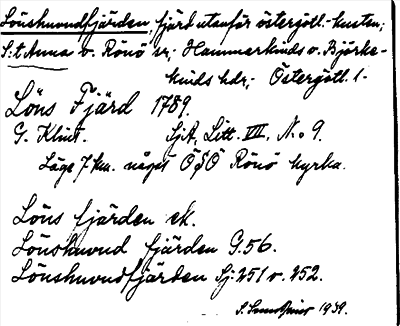 Lönshuvudfjärden, fjärd utanför östergötl. kusten;
S:t Anna o. Rönö sr; Hammarkinds o. Björke-
kinds hdr; Östergötl. l.
Löns Fjärd 1789.
G. Klint. Sj.A, Litt. VII, N:o 9.
Läge 7 km. något ÖSÖ Rönö kyrka.
Löns fjärden ek.
Lönshuvud fjärden G.56.
Lönshuvudfjärden Sj: 251 o. 252.
1939.